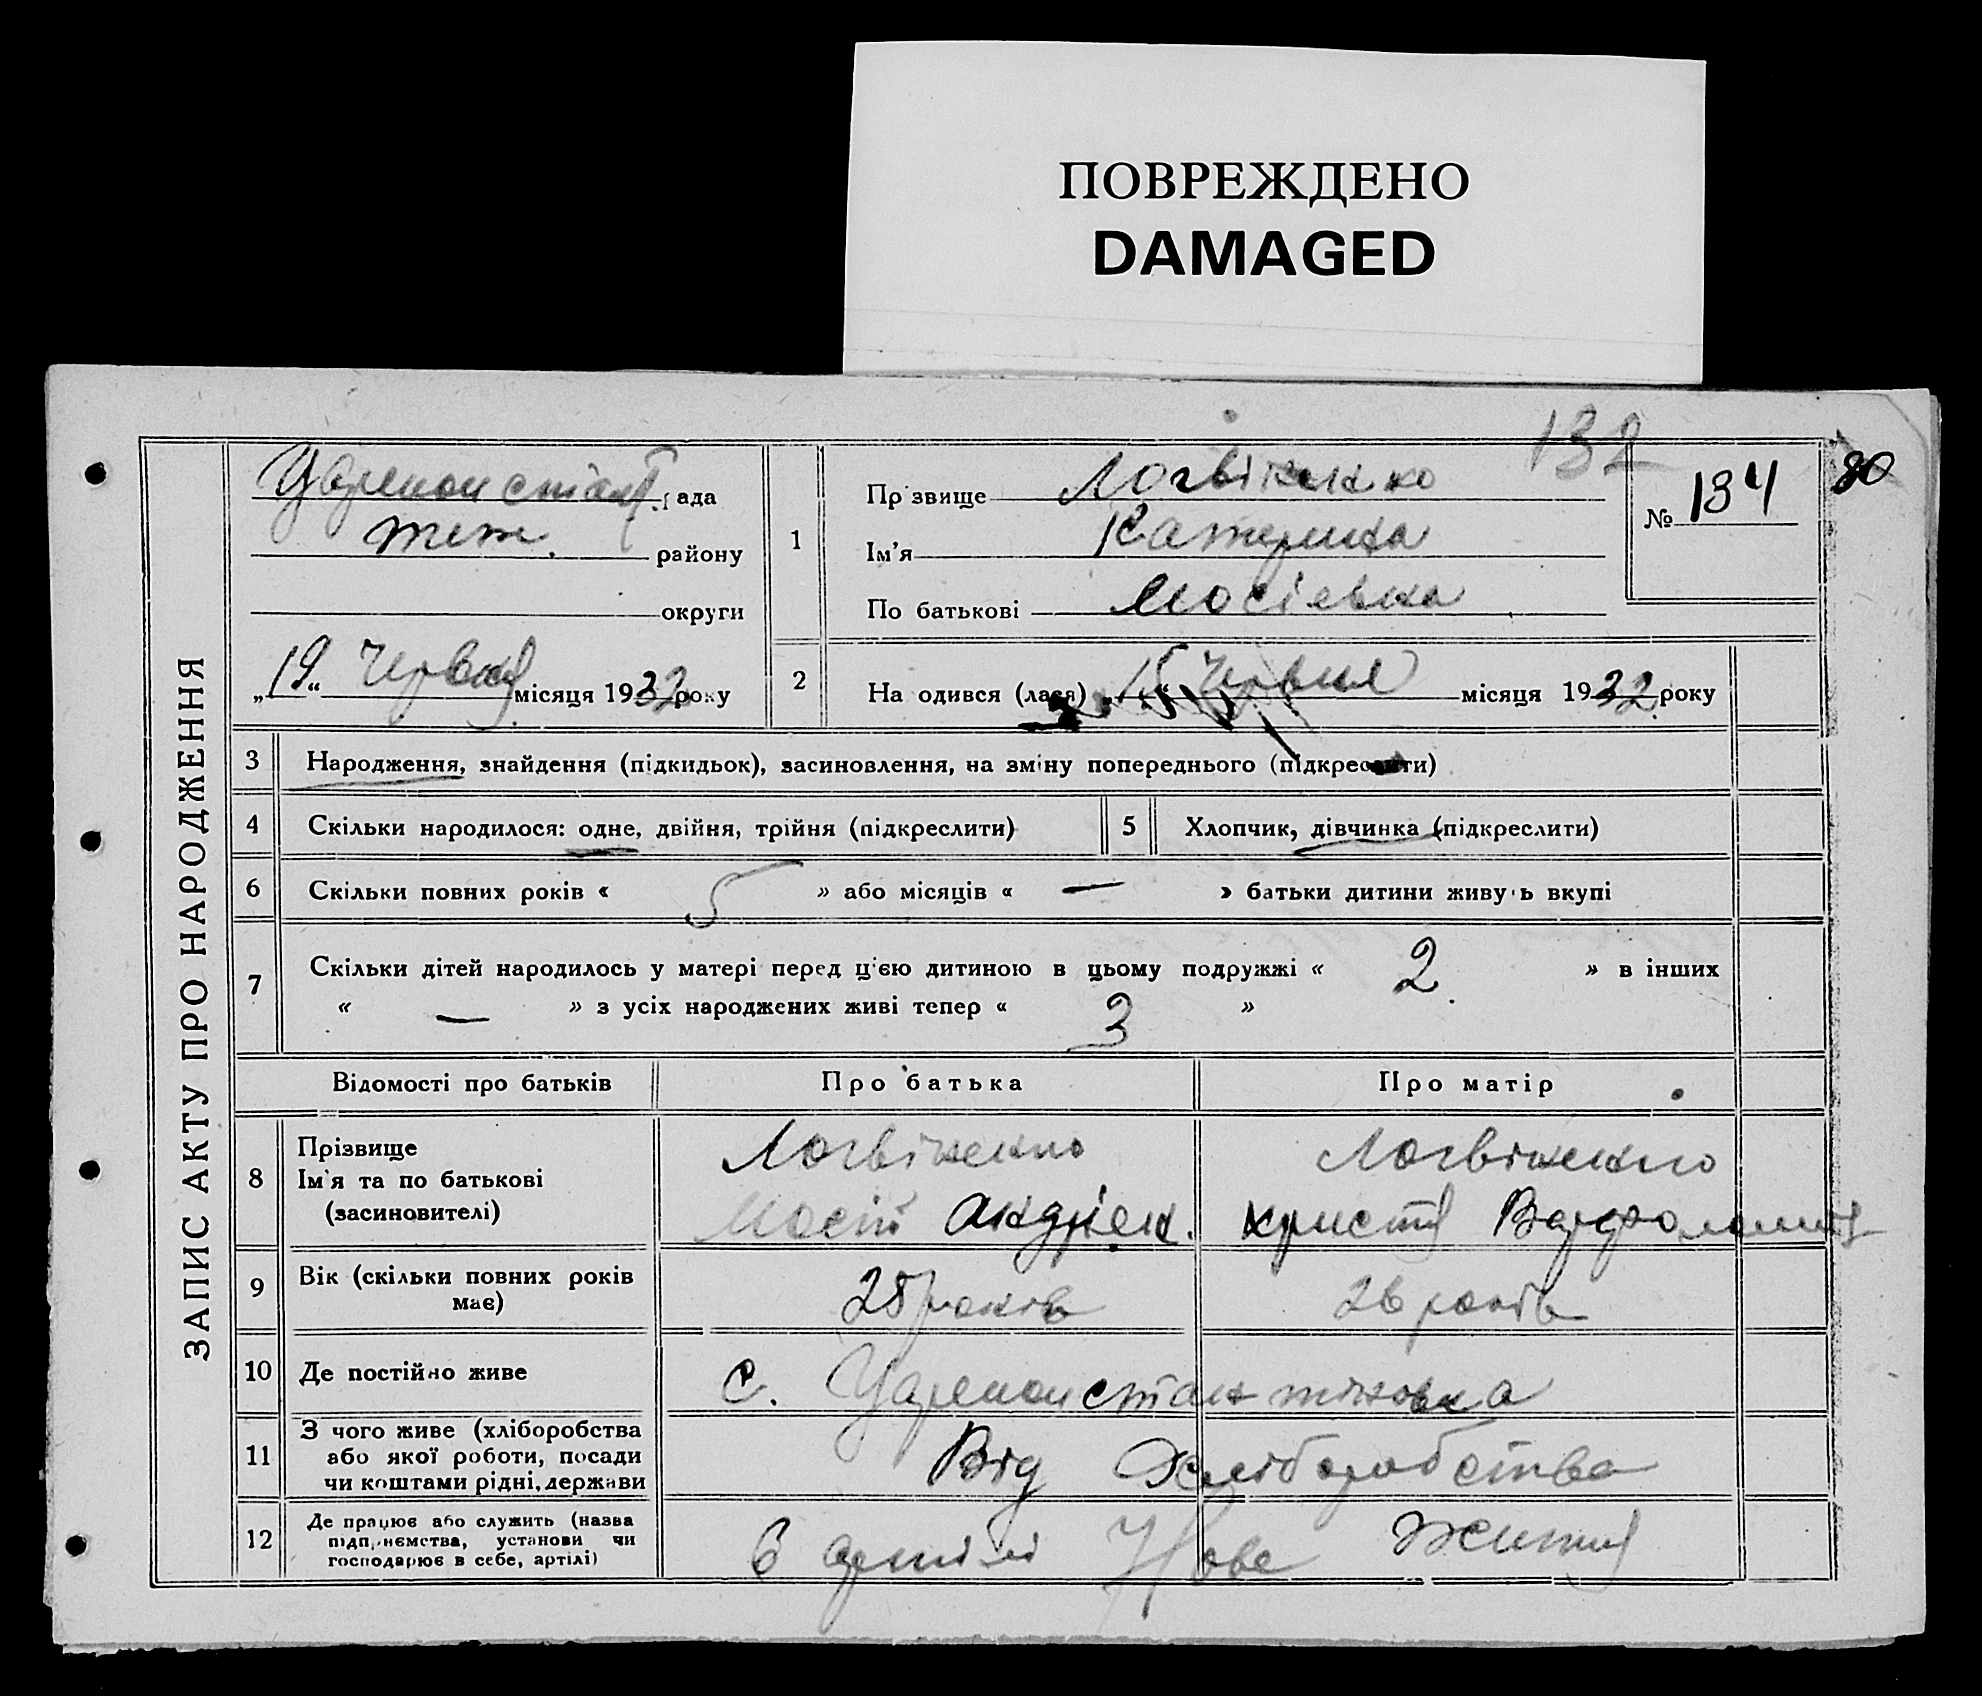 ПОВРЕЖДЕНО
DAMAGED
132
80
ЗАПИС АКТУ ПРО НАРОДЖЕННЯ
Цареконстант. рада
теж. району
округи
„19“ Червня місяця 1932 року
1
Прізвище Логвіненко
Ім'я Катерина
По батькові Мосіевна
№ 134
2
На одився (лася) „15“ Червня місяця 1932 року
3 Народження, знайдення (підкидьок), засиновлення, на зміну попереднього (підкреслити)
4 Скільки народилося: одне, двійня, трійня (підкреслити)
5 Хлопчик, дівчинка (підкреслити)
6 Скільки повних років « 5 » або місяців « — » батьки дитини живуть вкупі
7 Скільки дітей народилось у матері перед цією дитиною в цьому подружжі « 2 » в інших
« — » з усіх народжених живі тепер « 3 »
Відомості про батьків Про батька Про матір
8 Прізвище
Ім'я та по батькові
(засиновителі)
Логвіненко
Мосій Андріен.
Логвіненко
христя Варфоломия
9 Вік (скільки повних років
має)
25 років
26 років
10 Де постійно живе
с. Цареконстантіновка
11 З чого живе (хліборобства
або якої роботи, посади
чи коштами рідні, держави
Від Хліборобства
12 Де працює або служить (назва
підприємства, установи чи
господарює в себе, артілі)
в артілі Нове Життя